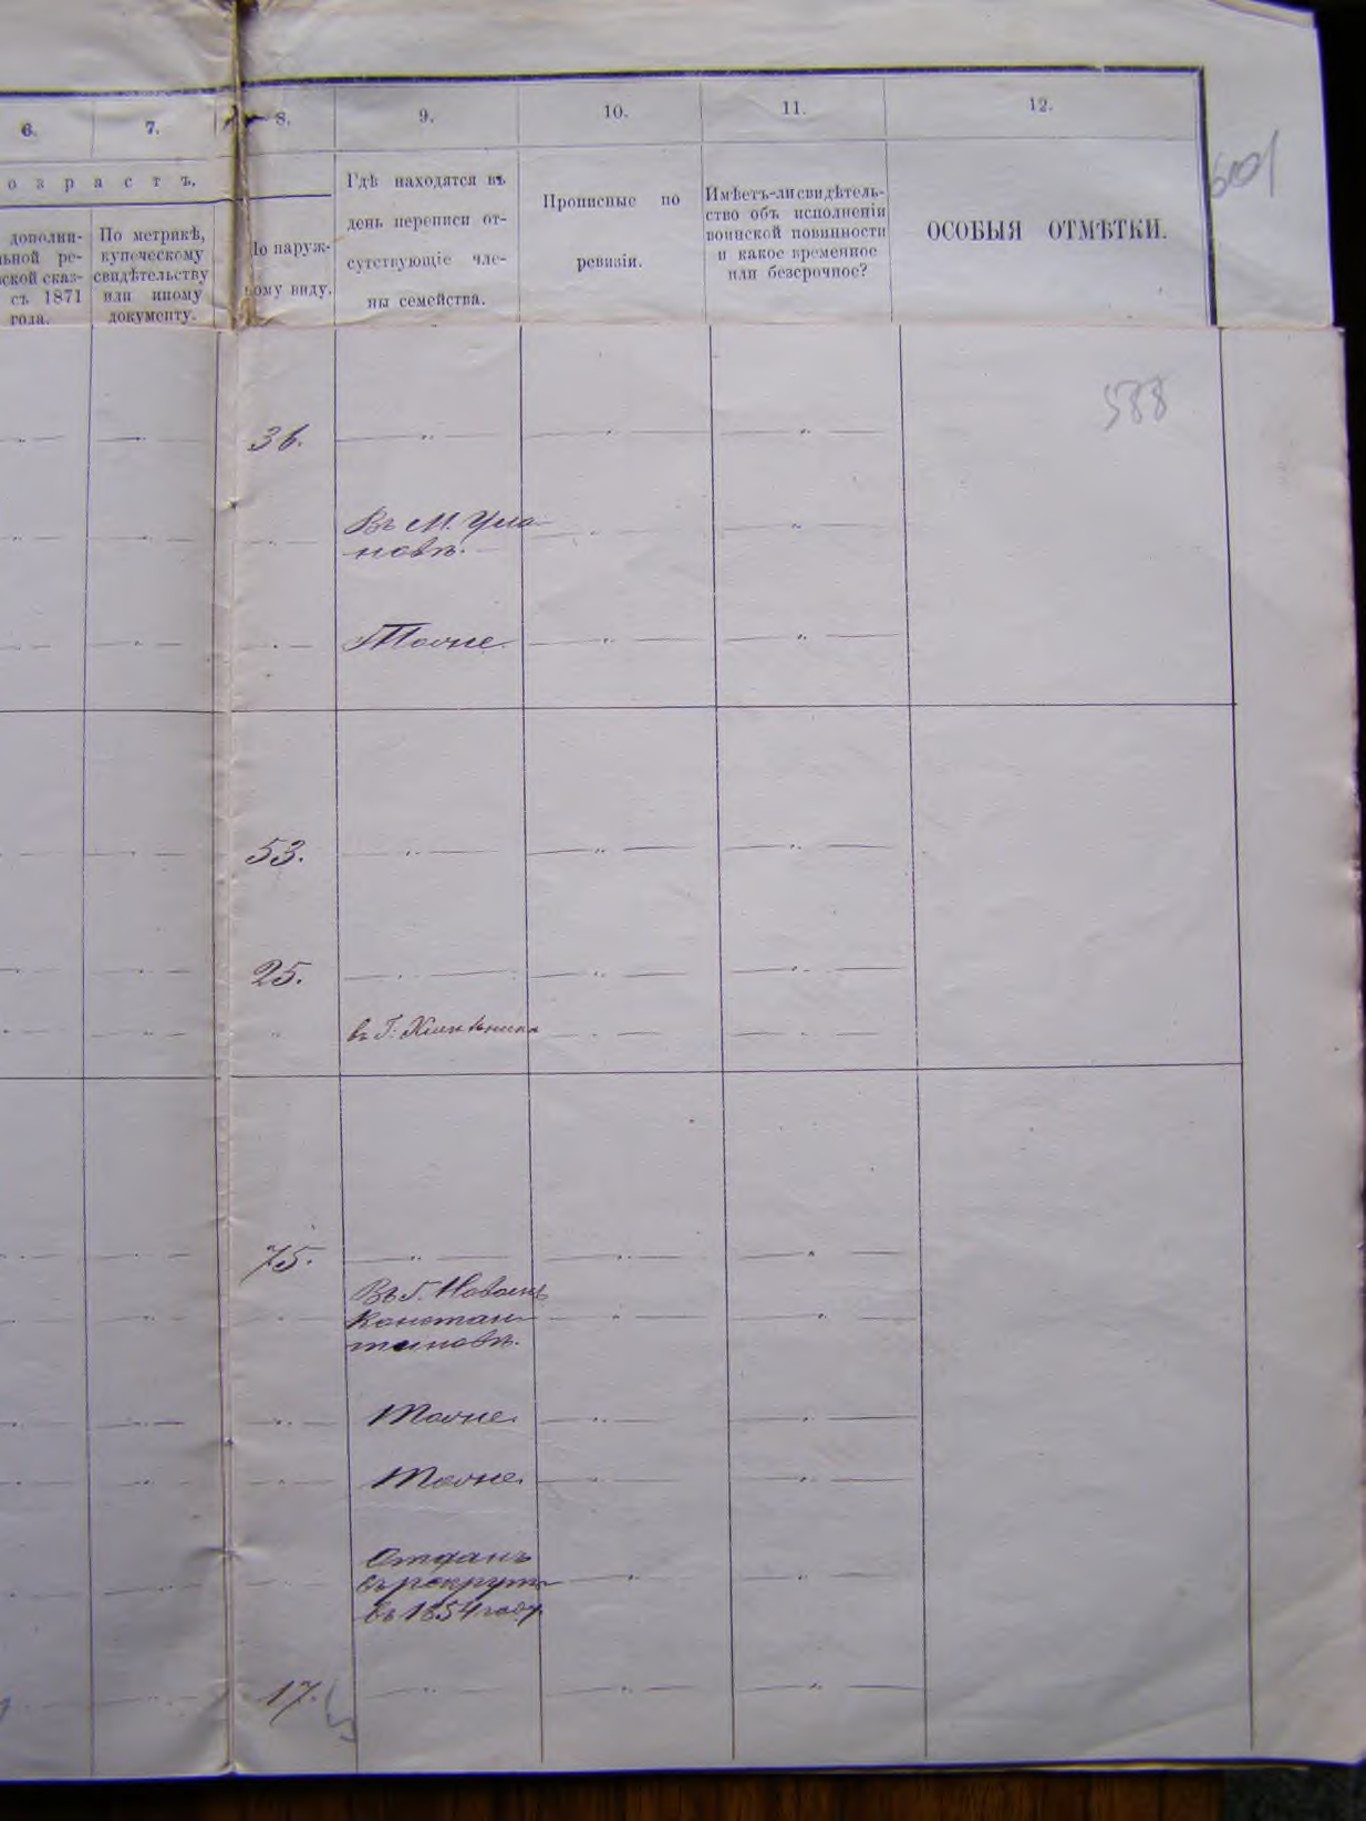 6.
7.
8.
9.
10.
11.
12.
озрастъ.
дополни-
льной ре-
ской сказ-
съ 1871
года.
По метрикѣ,
купеческому
свидѣтельству
или иному
документу.
По наруж-
ному виду.
Гдѣ находятся въ
день переписи от-
сутствующіе чле-
ны семейства.
Прописные по
ревизіи.
Имѣетъ-ли свидѣтель-
ство объ исполненіи
воинской повинности
и какое временное
или безсрочное?
ОСОБЫЯ ОТМѢТКИ.
601
588
36.
Въ М. Ула-
новѣ.
Тоже
53.
25.
въ Г.
75.
Въ Г.
Констан-
тиновѣ.
Тоже.
Тоже.
Отданъ
въ рекруты
въ 1854 году.
17.